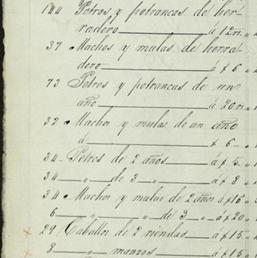 144 Potros y potrancas de her-
radero á 12 rs. "
37 Machos y mulas de herra-
dero á £ 6 " "
73 Potros y potrancas de un
año á 20 rs. "
32 Machos y mulas de un año
á £ 6 "
34 Potros de 2 años á £ 5 "
34 " de 3 " á £ 8 "
34 Machos y mulas de 2 años á £ 16 "
6 " " de 3 " á £ 20 "
29 Caballos de 2 riendas á £ 15
8 " mansos á £ 15